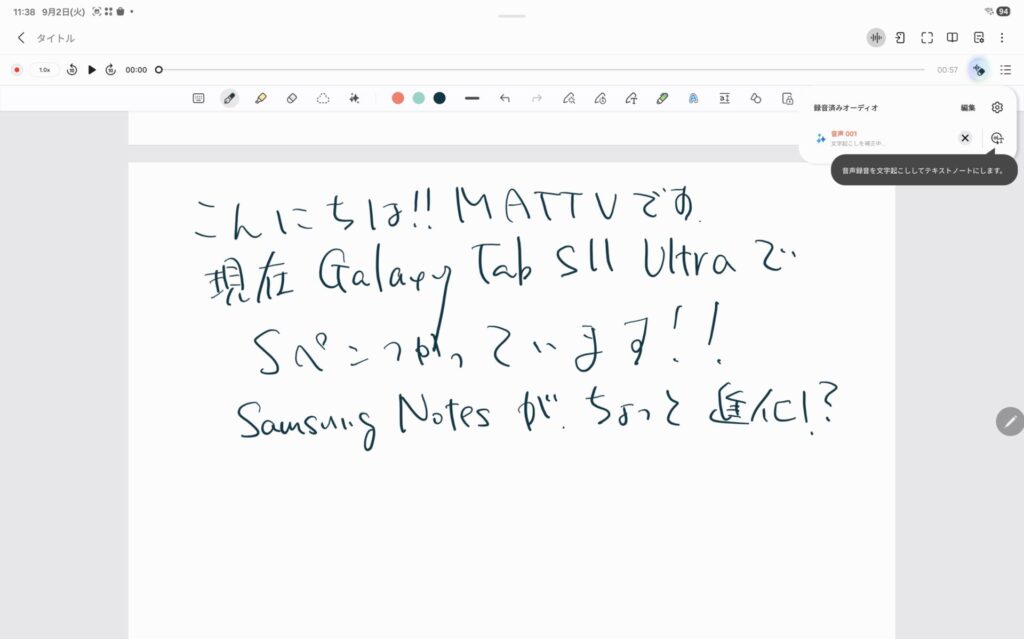 11:38 9月2日(火)
94
タイトル
1.0x
00:00
00:57
録音済みオーディオ 編集
音声 001
文字起こしを補正中...
音声録音を文字起こししてテキストノートにします。
こんにちは!! MATTVです.
現在 Galaxy Tab S11 Ultraで
Sペンつかっています!!
Samsung Notes が ちょっと 進化!?